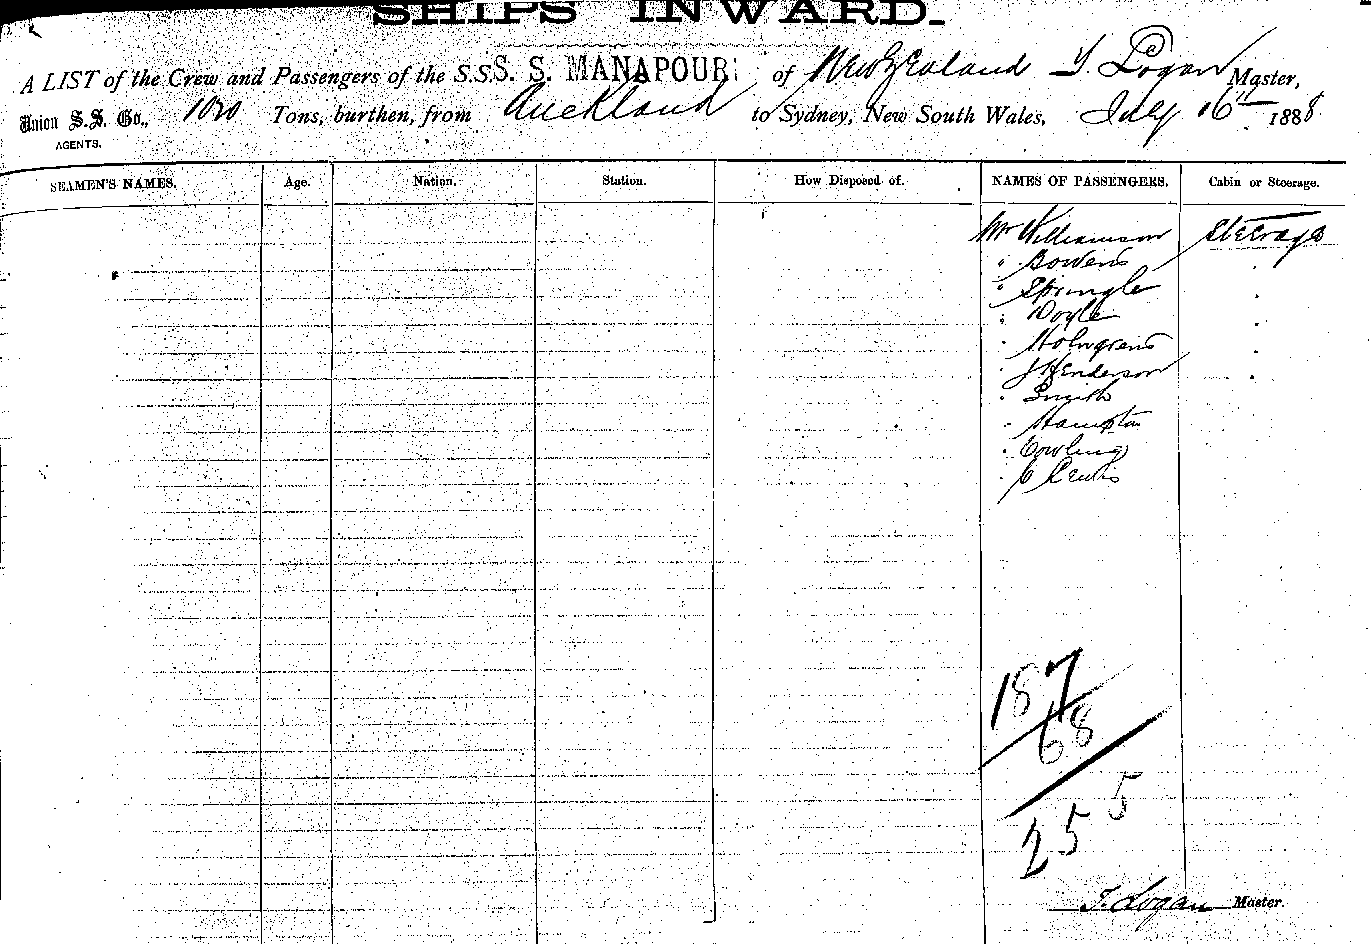 SHIPS INWARD.
A LIST of the Crew and Passengers of the S.S. S. S. MANAPOURI of New Zealand T. Logan Master,
Union S.S. Co., Tons, burthen, from Auckland to Sydney, New South Wales, July 16th 1888
AGENTS.
SEAMEN'S NAMES. Age. Nation. Station. How Disposed of. NAMES OF PASSENGERS. Cabin or Steerage.
Mr Williamson Steerage
" Bowens
" Springle
" Doyle
" Holmgrens
" J Henderson
" Smith
" Hampton
" Cowling
" C Lewis
187
68
255
T. Logan Master.